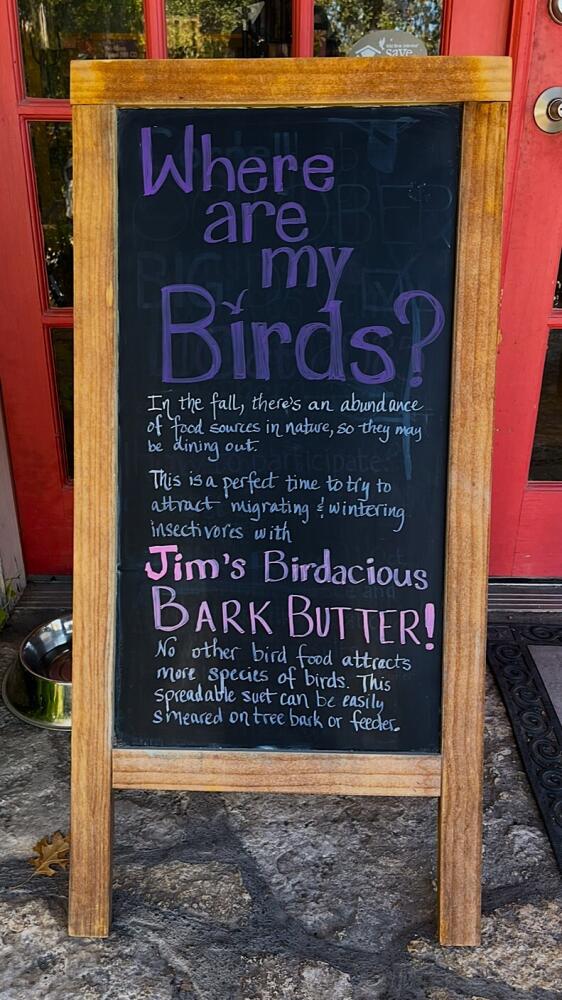 Where
are
my
Birds?
In the fall, there's an abundance
of food sources in nature, so they may
be dining out.
This is a perfect time to try to
attract migrating & wintering
insectivores with
Jim's Birdacious
BARK BUTTER!
No other bird food attracts
more species of birds. This
spreadable suet can be easily
smeared on tree bark or feeder.
save